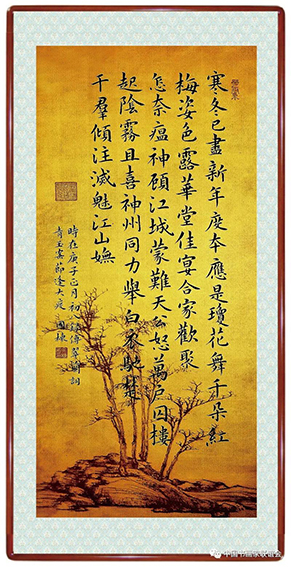 寒冬已盡新年度本應是瓊花舞千朵紅
梅姿色露華堂佳宴合家歡聚
怎奈瘟神顧江城蒙難天公怒萬戶囚樓
起陰霧且喜神州同力舉白衣馳楚
千羣傾注滅魅江山嫵
時在庚子正月初八錄傅萃詞
青玉案節逢大疫 國棟
中国书画家联谊会